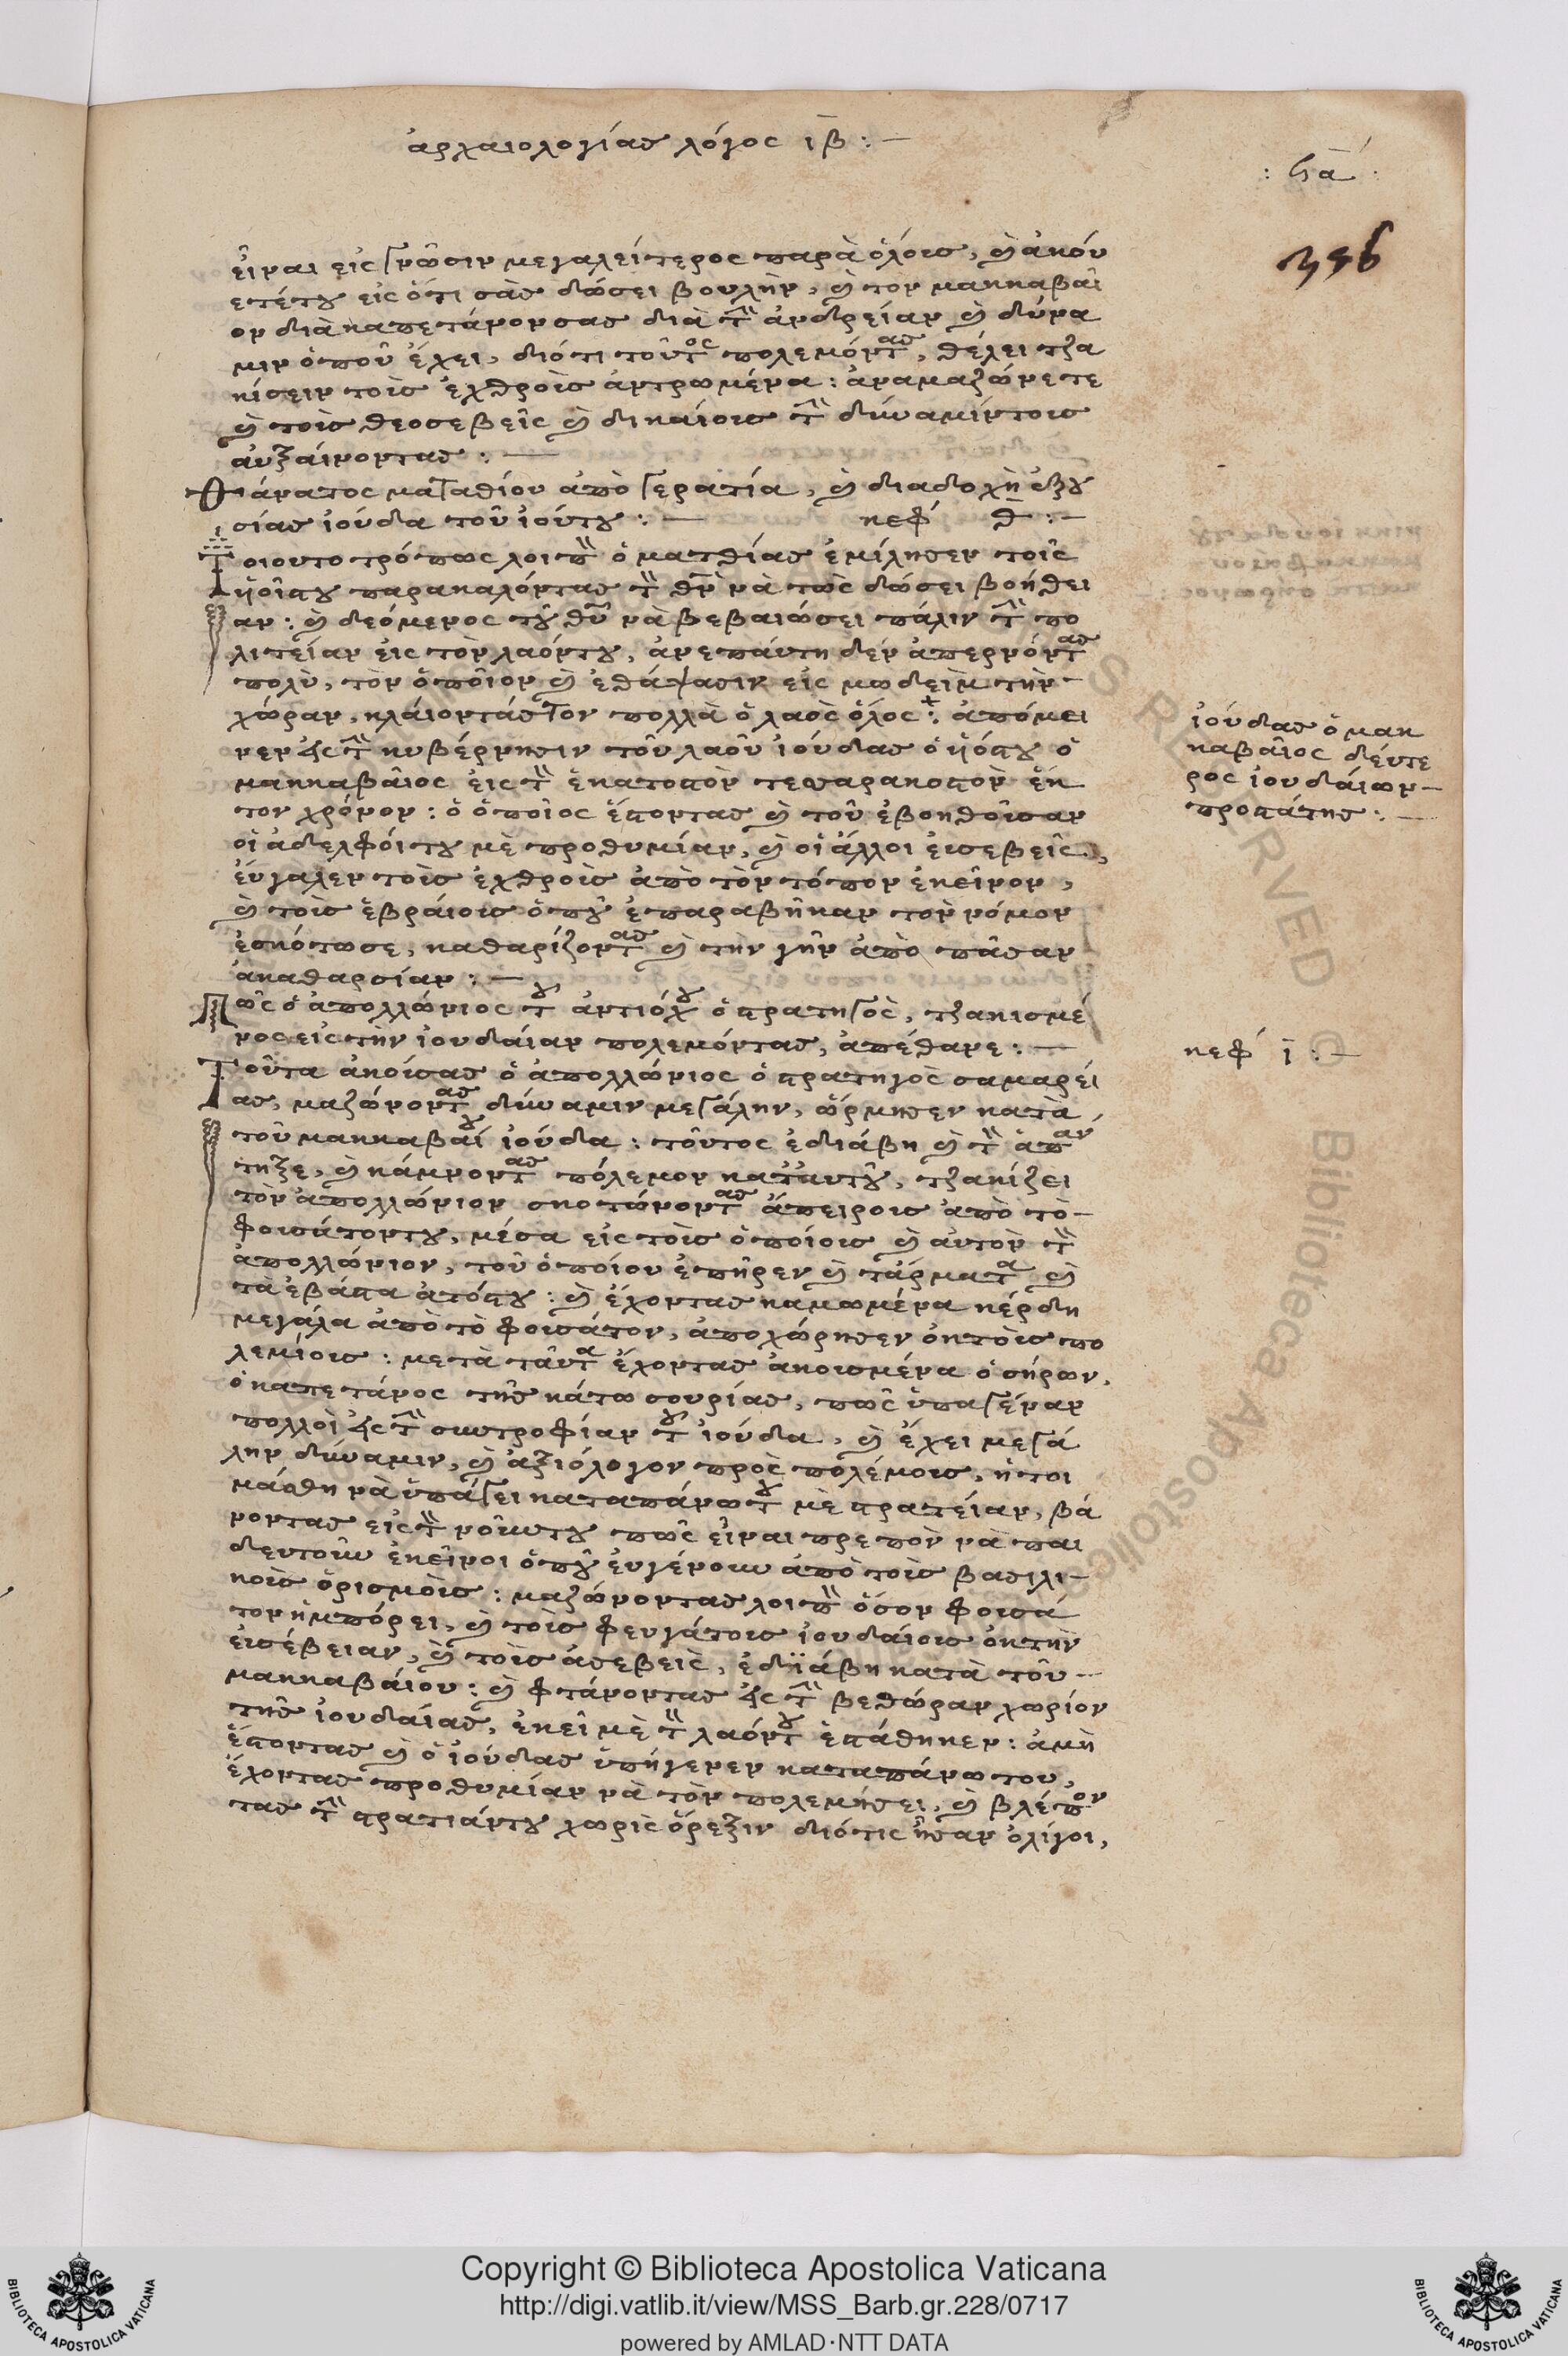 ἀρχαιολογίας λόγος ιβ :—
εἶναι εἰς γνῶσιν μεγαλείτερος παρὰ ὁλόους, καὶ ἀκού
ετέτου εἰς ὅτι σὰς δώσει βουλὴν, καὶ τον μακκαβαῖ
ον διὰ καπετάνον σας διὰ τὴν ἀνδρείαν καὶ δύνα
μιν ὁποῦ ἔχει, διότι τοῦτος πολεμόντας, θέλει τζα
κίσειν τοὺς ἐχθροὺς ἀντρωμένα : ἀναμαζώνετε
καὶ τοὺς θεοσεβεῖς καὶ δικαίους τὴν δύναμίντους
αὐξαίνοντας :—
Θάνατος ματαθίου ἀπὸ γερατία, καὶ διαδοχὴ ἐξου
σίας ἰούδα τοῦ ἱοῦτου :— κεφ θ :—
Τοιουτοτρόπως λοιπὸν ὁ ματθίας ἐμίλησεν τοῖς
ἡοῖςτου παρακαλόντας τὸν θν νὰ τως δώσει βοήθει
αν : καὶ δεόμενος τοῦ θυ νὰ βεβαιώσει πάλιν τὴν πο
λιτείαν εἰς τὸν λαόντου, ἀνεπαύτη δὲν ἀπερνόντας
πολὺ, τὸν ὁποῖον καὶ ἐθάψασιν εἰς μωδεὶμ τὴν
χώραν, κλάιοντάς τον πολλὰ ὁ λαὸς ὅλος : ἀπόμει
νεν εἰς τὴν κυβέρνησιν τοῦ λαοῦ ἰούδας ὁ ἡόςτου ὁ
μακκαβαῖος εἰς τὸν ἑκατοστὸν τεσσαρακοστὸν ἕκ
τον χρόνον : ὁ ὁποῖος ἔστοντας καὶ τοῦ ἐβοηθοῦσαν
οἱ ἀδελφοίτου μὲ προθυμίαν, καὶ οἱ ἄλλοι εὐσεβεῖς,
εὔγαλεν τοὺς ἐχθροὺς ἀπὸ τὸν τόπον ἐκεῖνον,
καὶ τοὺς ἑβραίους ὁποῦ ἐπαραβῆκαν τὸν νόμον
ἐσκότωσε, καθαρίζοντας καὶ τὴν γῆν ἀπὸ πᾶσαν
ἀκαθαρσίαν :—
Πῶς ὁ ἀπολλώνιος τοῦ ἀντιόχου ὁ στρατηγὸς, τζακισμέ
νος εἰς τὴν ἰουδαίαν πολεμόντας, ἀπέθανε :—
Τοῦτα ἀκούσας ὁ ἀπολλώνιος ὁ στρατηγὸς σαμαρεί
ας, μαζώνοντας δύναμιν μεγάλην, ὥρμησεν κατὰ
τοῦ μακκαβαίου ἰούδα : τοῦτος ἐδιάβη καὶ τὸν ἀπαν
τηξε, καὶ κάμνοντας πόλεμον κατ' αυτοῦ, τζακίζει
τὸν ἀπολλώνιον σκοτώνοντας ἄπειρους ἀπὸ τὸ
φουσάτοντου, μέσα εἰς τοὺς ὁποίους καὶ αὐτὸν τὸν
ἀπολλώνιον, τοῦ ὁποίου ἐπῆρεν καὶ τἄρματα καὶ
τὰ ἐβάστα ἀτόςτου : καὶ ἔχοντας καμωμένα κέρδη
μεγάλα ἀπὸ τὸ φουσάτον, ἀποχώρησεν ἐκ τοὺς πο
λεμίους : μετὰ ταῦτα ἔχοντας ἀκουσμένα ὁ σήρων,
ὁ καπετάνος τῆς κάτω συρίας, πῶς ὑπαγέναν
πολλοὶ εἰς τὴν συντροφίαν τοῦ ἰούδα, καὶ ἔχει μεγά
λην δύναμιν, καὶ ἀξιόλογον πρὸς πολέμους, ἤτοι
μάσθη νὰ ὑπάγει καταπάνωτου μὲ στρατείαν, βά
νοντας εἰς τὸν νοῦντου πῶς εἶναι πρεπὸν νὰ παι
δευτοῦν ἐκεῖνοι ὁποῦ εὐγένουν ἀπὸ τοὺς βασιλι
κοὺς ὁρισμοὺς : μαζώνοντας λοιπὸν ὅσον φουσά
τον ἠμπόρει, καὶ τοὺς φευγάτους ἰουδαίους ἐκ τὴν
εὐσέβειαν, καὶ τοὺς ἀσεβεῖς, ἐδϊάβη κατὰ τοῦ
μακκαβαίου : καὶ φτάνοντας εἰς τὴν βεθώραν χωρίον
τῆς ἰουδαίας, ἐκεῖ μὲ τὸν λαόντου ἐστάθηκεν : ἀμὴ
ἔστοντας καὶ ὁ ἰούδας ὑπήγενεν καταπάνω του,
ἔχοντας προθυμίαν νὰ τὸν πολεμήσει, καὶ βλέπον
τας τὴν στρατιάντου χωρὶς ὄρεξιν διότις ἦσαν ὀλίγοι,
ἰούδας ὁ μακ
καβαῖος δέυτε
ρος ἰουδαίων
προστάτης :—
κεφ ι :—
Copyright © Biblioteca Apostolica Vaticana
http://digi.vatlib.it/view/MSS_Barb.gr.228/0717
powered by AMLAD·NTT DATA
BIBLIOTECA APOSTOLICA VATICANA
BIBLIOTECA APOSTOLICA VATICANA